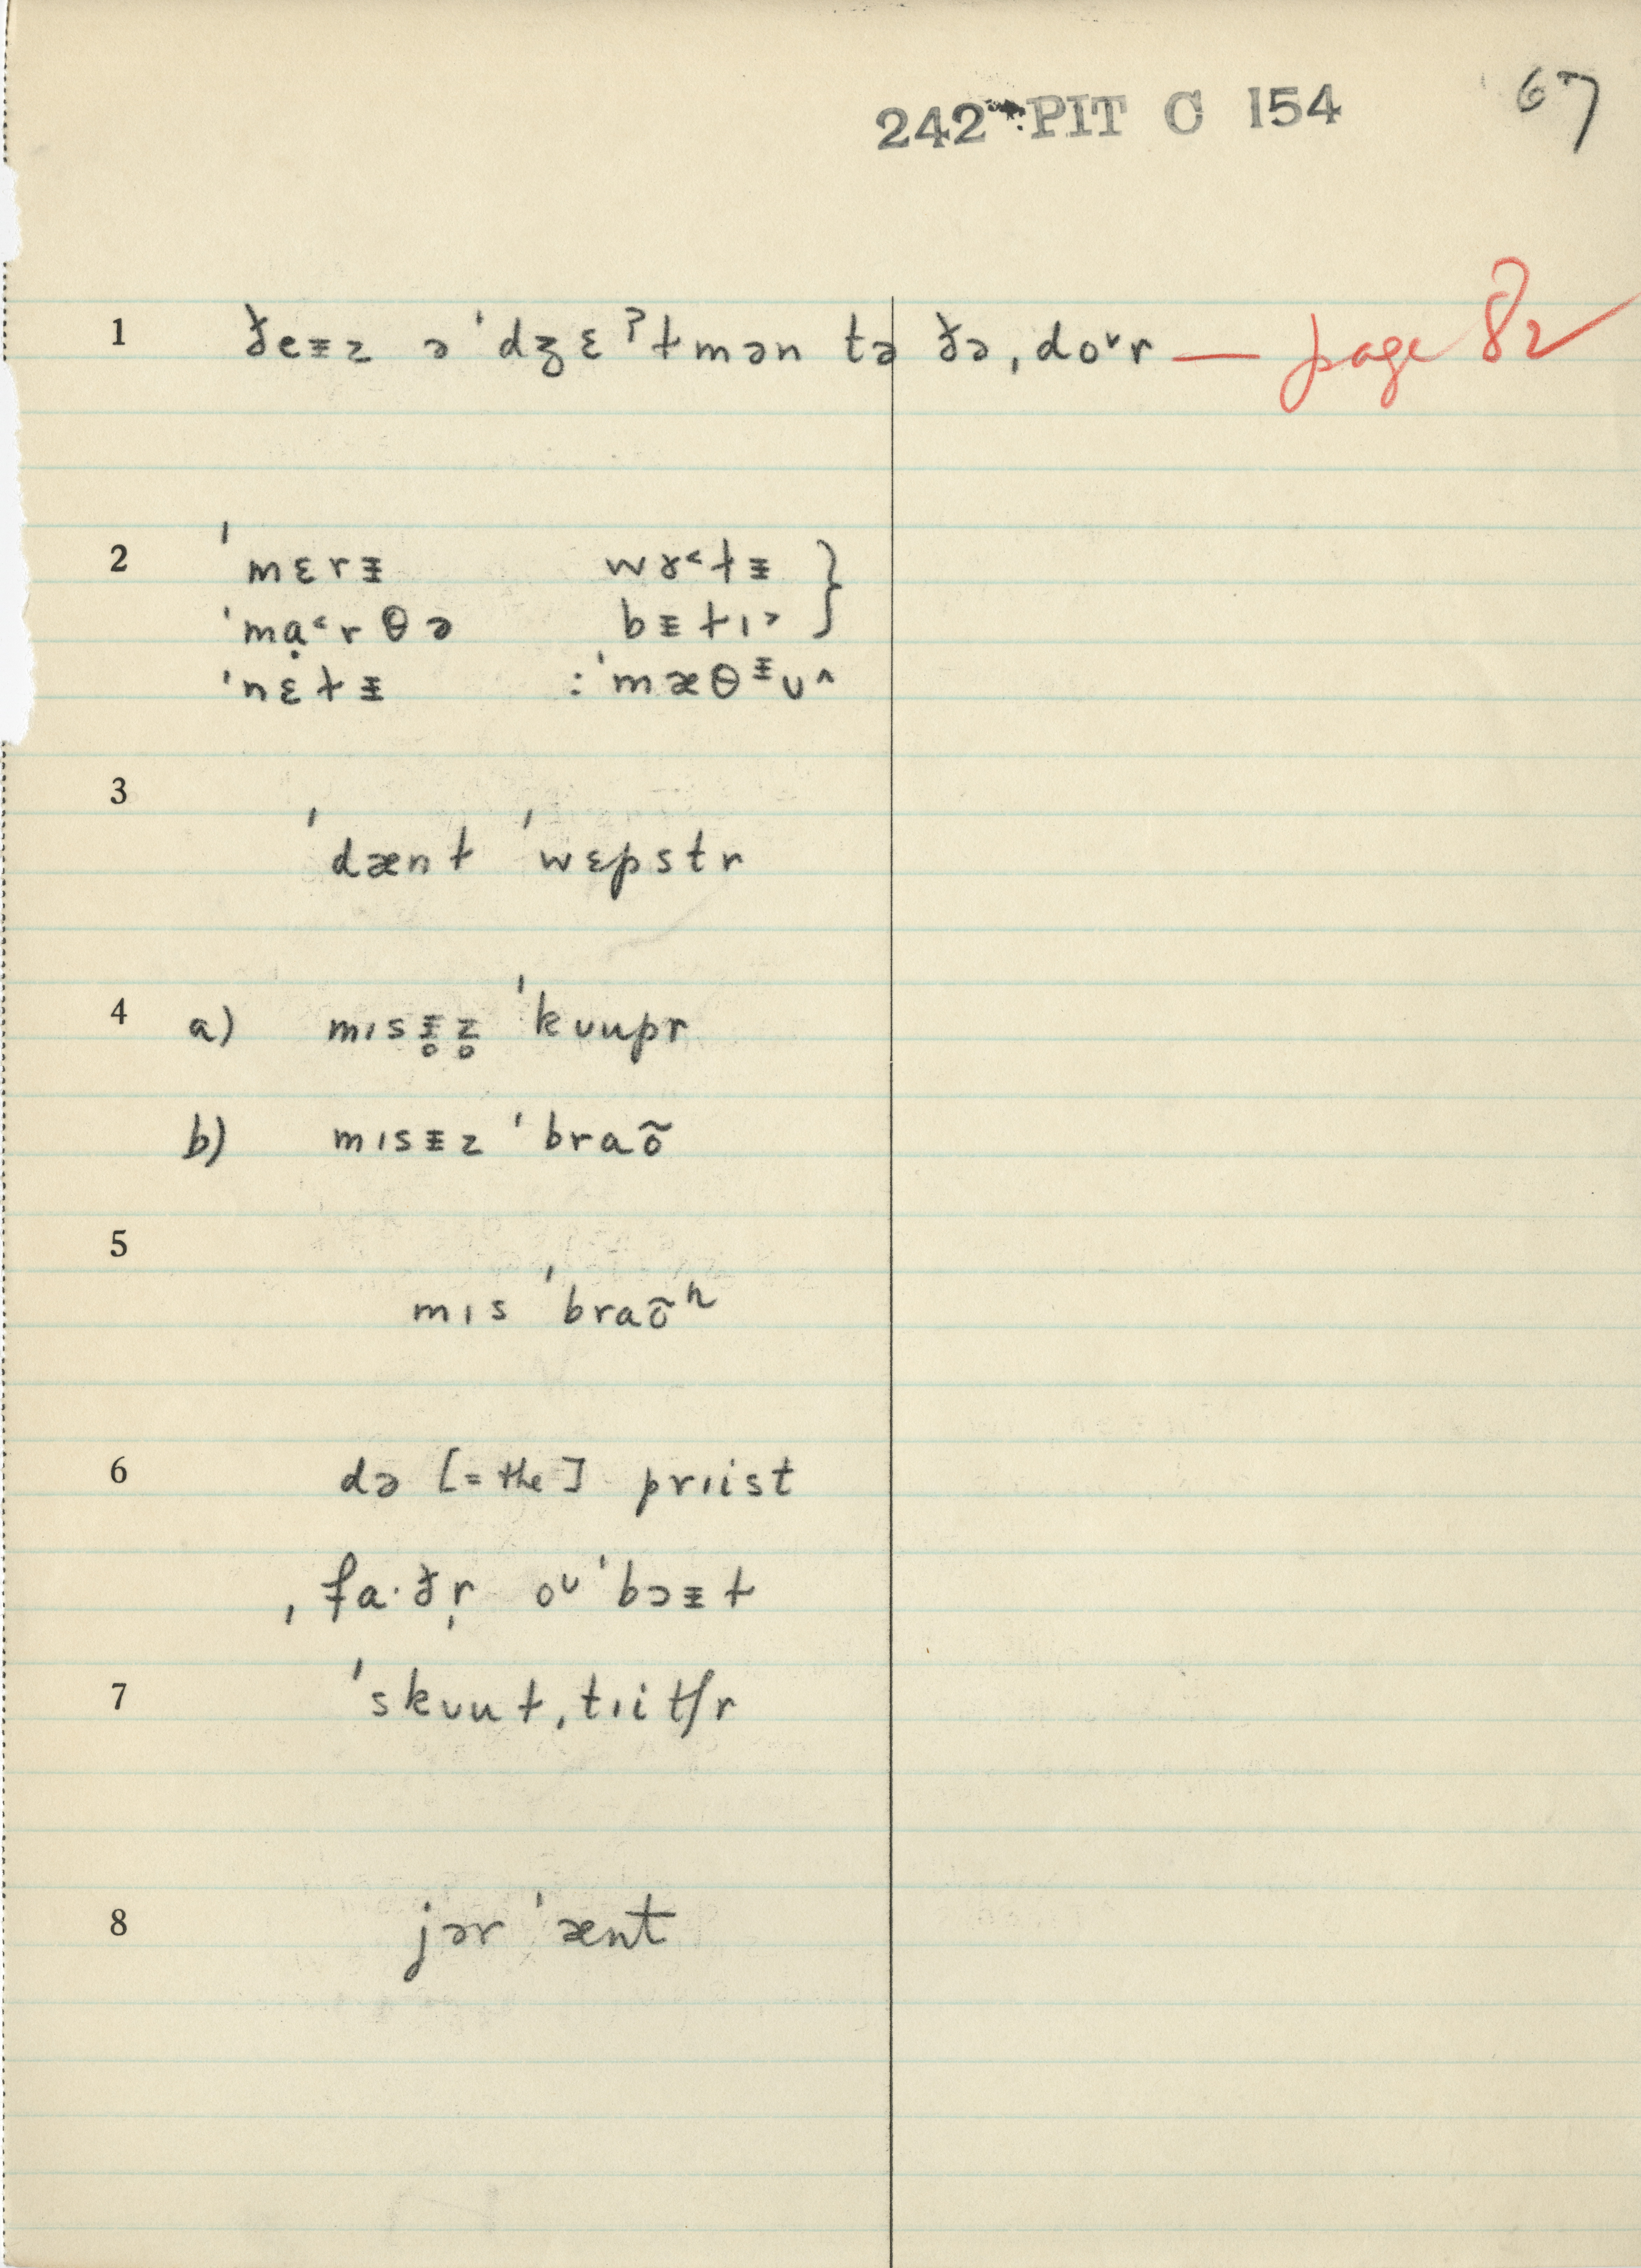 242 PIT C 154 67
1 ðeᵻz ə ˈdʒɛˀɫmən tə ðə ˌdoᵛr — page 82
2 ˈmɛrᵻ wɤ˂ɫᵻ }
ˈmạ˂rθə bᵻɫɪ˃
ˈnɛɫᵻ : ˈmæθᵻᴜ^
3
ˈdænɫ ˈwɛpstr
4 a) mɪsᵻ̥z̥ ˈkᴜupr
b) mɪsᵻz ˈbraõ
5
mɪs ˈbraõⁿ
6 də [= the] prɪist
ˌfa·ðr̩ oᶸ ˈbɔᵻɫ
7 ˈskᴜuɫ ˌtɪitʃr
8 jər ˈænt